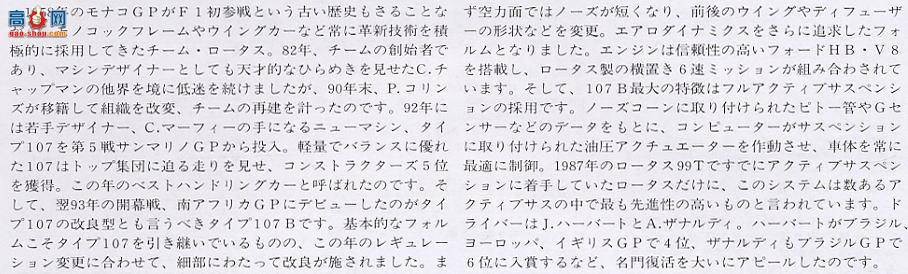 高
gao-shou.com
年のモナコGPがF1初参戦という古い歴史もさることな
ノコックフレームやウイングカーなど常に革新技術を積
極的に採用してきたチーム・ロータス。82年、チームの創始者で
あり、マシンデザイナーとしても天才的なひらめきを見せたC.チ
ャップマンの他界を境に低迷を続けましたが、90年末、P.コリン
ズが移籍して組織を改変、チームの再建を計ったのです。92年に
は若手デザイナー、C.マーフィーの手になるニューマシン、タイ
プ107を第5戦サンマリノGPから投入。軽量でバランスに優れ
た107はトップ集団に迫る走りを見せ、コンストラクターズ5位
を獲得。この年のベストハンドリングカーと呼ばれたのです。そ
して、翌93年の開幕戦、南アフリカGPにデビューしたのがタイ
プ107の改良型とも言うべきタイプ107Bです。基本的なフォル
ムこそタイプ107を引き継いでいるものの、この年のレギュレー
ション変更に合わせて、細部にわたって改良が施されました。ま
ず空力面ではノーズが短くなり、前後のウイングやディフューザ
ーの形状などを変更。エアロダイナミクスをさらに追求したフォ
ルムとなりました。エンジンは信頼性の高いフォードHB・V8
を搭載し、ロータス製の横置き6速ミッションが組み合わされて
います。そして、107B最大の特徴はフルアクティブサスペンシ
ョンの採用です。ノーズコーンに取り付けられたピトー管やGセ
ンサーなどのデータをもとに、コンピューターがサスペンション
に取り付けられた油圧アクチュエーターを作動させ、車体を常に
最適に制御。1987年のロータス99Tですでにアクティブサスペン
ションに着手していたロータスだけに、このシステムは数あるア
クティブサスの中で最も先進性の高いものと言われています。ド
ライバーはJ.ハーバートとA.ザナルディ。ハーバートがブラジル、
ヨーロッパ、イギリスGPで4位、ザナルディもブラジルGPで
6位に入賞するなど、名門復活を大いにアピールしたのです。